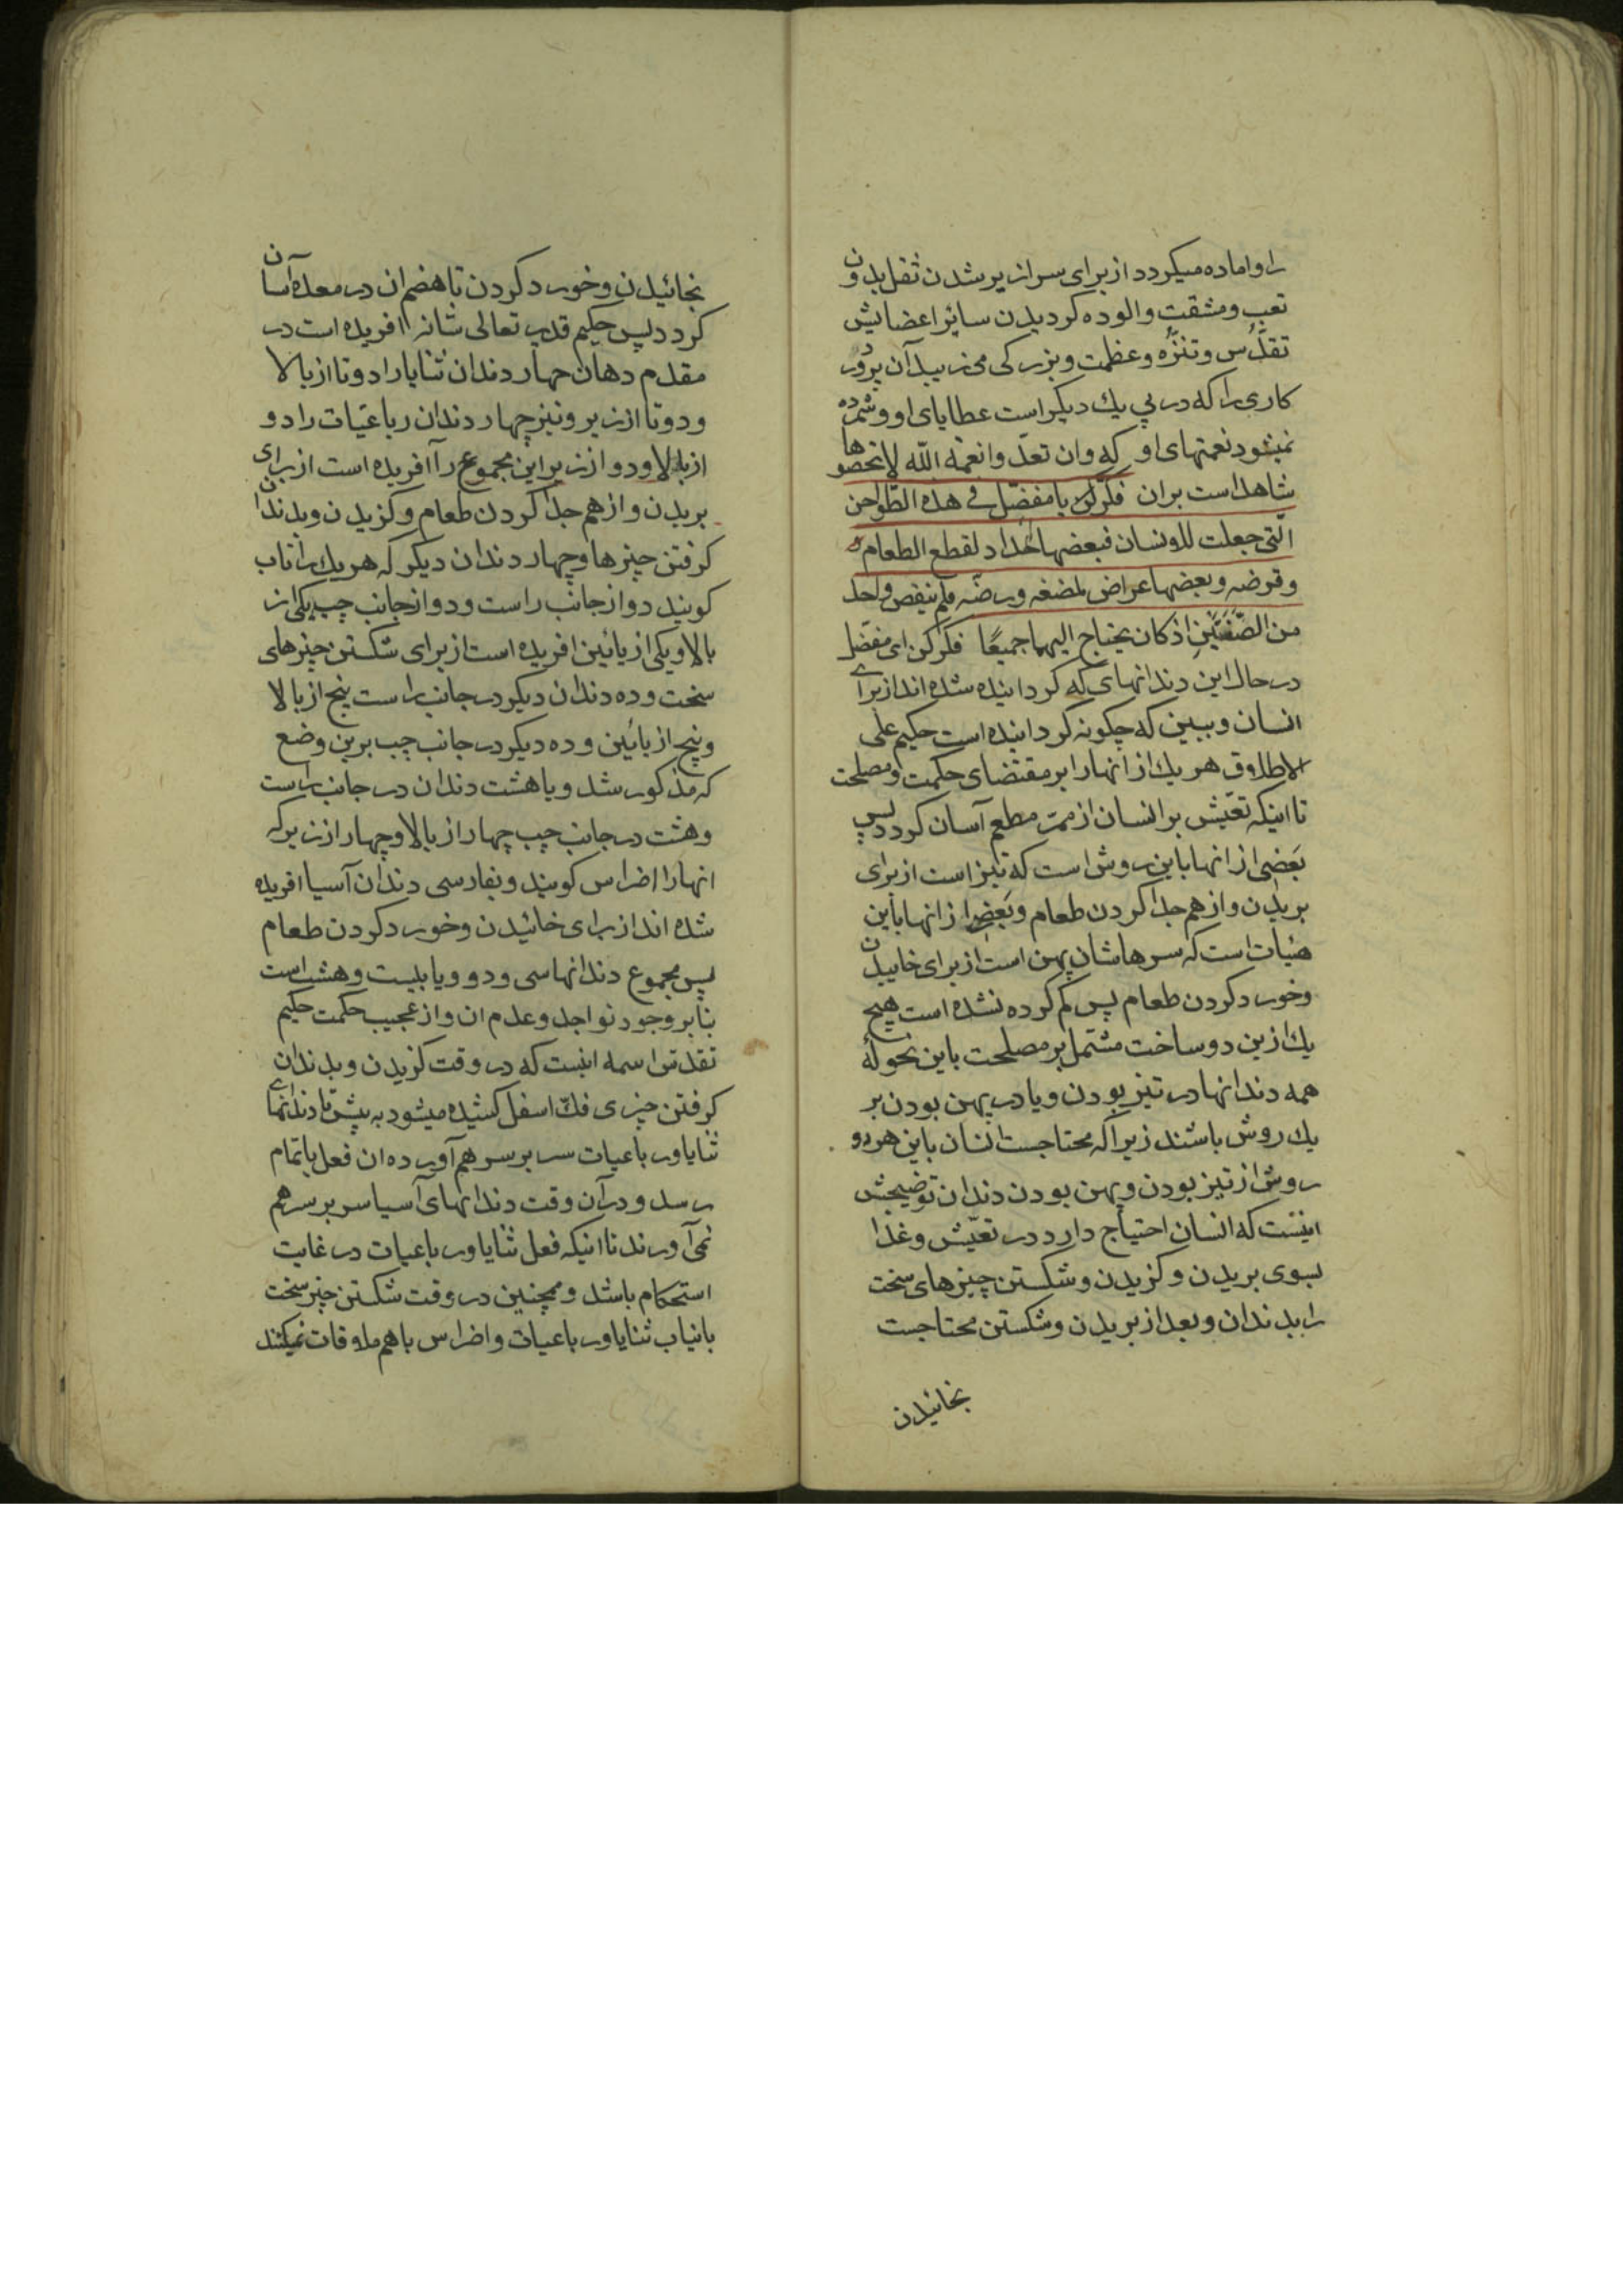 را و اماده میکردد از برای سرازیر شدن ثفل بدون
تعب و مشقت و الوده کردیدن سائر اعضایش
تقدّس و تنزّه و عظمت و بزرکی می زیبد آن پرورد
کاری را که در پی یك دیکر است عطایای او و شمرده
نمیشود نعمتهای او که وان تعدّوا نعمة اللّه لا تحصوها
شاهد است بران فکّر یا مفضّل فی هذه الطواحن
الّتی جعلت للانسان فبعضها حداد لقطع الطعام
و قرضه و بعضها عراض لمضغه و رضّه فلم ینقص واحد
من الصّفتین اذ کان یحتاج الیهما جمیعًا فکر کن ای مفضّل
در حال این دندانهای که کردانیده شده اند از برای
انسان و ببین که چکونه کردانیده است حکیم علی
الاطلاق هر یك از انها را بر مقتضای حکمت و مصلحت
تا اینکه تعیّش بر انسان از ممرّ مطعم آسان کردد پس
بعضی از انها باین روش است که تیز است از برای
بریدن و از هم جدا کردن طعام و بعضی از انها باین
هیات است که سرهاشان پهن است از برای خاییدن
و خورد کردن طعام پس کم کرده نشده است هیچ
یك ازین دو ساخت مشتمل بر مصلحت باین نحو که
همه دندانها در تیز بودن و یا در پهن بودن بر
یك روش باشند زیرا که محتاجست انسان باین هر دو
روش از تیز بودن و پهن بودن دندان توضیحش
اینست که انسان احتیاج دارد در تعیّش و غذا
بسوی بریدن و کزیدن و شکستن چیزهای سخت
را بدندان و بعد از بریدن و شکستن محتاجست
بخائیدن
بخائیدن و خورد کردن تا هضم ان در معده آسان
کردد پس حکیم قدیر تعالی شانه افریده است در
مقدم دهان چهار دندان ثنایا را دو تا از بالا
و دو تا از زیر و نیز چهار دندان رباعیّات را دو
از بالا و دو از زیر این مجموع را آفریده است از برای
بریدن و از هم جدا کردن طعام و کزیدن و بدندان
کرفتن چیزها و چهار دندان دیکر که هر یك را ناب
کویند دو از جانب راست و دو از جانب چپ یکی از
بالا و یکی از پائین افریده است از برای شکستن چیزهای
سخت و ده دندان دیکر در جانب راست پنج از بالا
و پنج از پائین و ده دیکر در جانب چپ برین وضع
که مذکور شد و یا هشت دندان در جانب راست
و هشت در جانب چپ چهار از بالا و چهار از زیر که
انها را اضراس کویند و بفارسی دندان آسیا افریده
شده اند از برای خائیدن و خورد کردن طعام
پس مجموع دندانها سی و دو و یا بیست و هشت است
بنا بر وجود نواجد و عدم ان و از عجیب حکمت حکیم
تقدّس اسمه اینست که در وقت کزیدن و بدندان
کرفتن چیزی فكّ اسفل کشیده میشود به پیش تا دندانهای
ثنایا و رباعیات سر بر سر هم آورده ان فعل باتمام
رسد و در آن وقت دندانهای آسیا سر بر سر هم
نمی آورند تا اینکه فعل ثنایا و رباعیات در غایت
استحکام باشد و همچنین در وقت شکستن چیز سخت
بانیاب ثنایا و رباعیات و اضراس با هم ملاقات نمیکنند